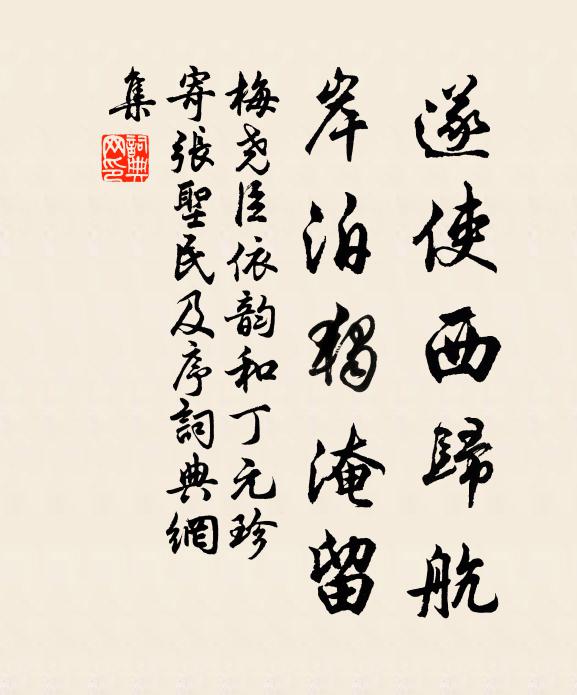 遂使西歸航
岸泊獨淹留
梅堯臣依韵和丁元珍
寄張聖民及序詞典網
集
詞典網印